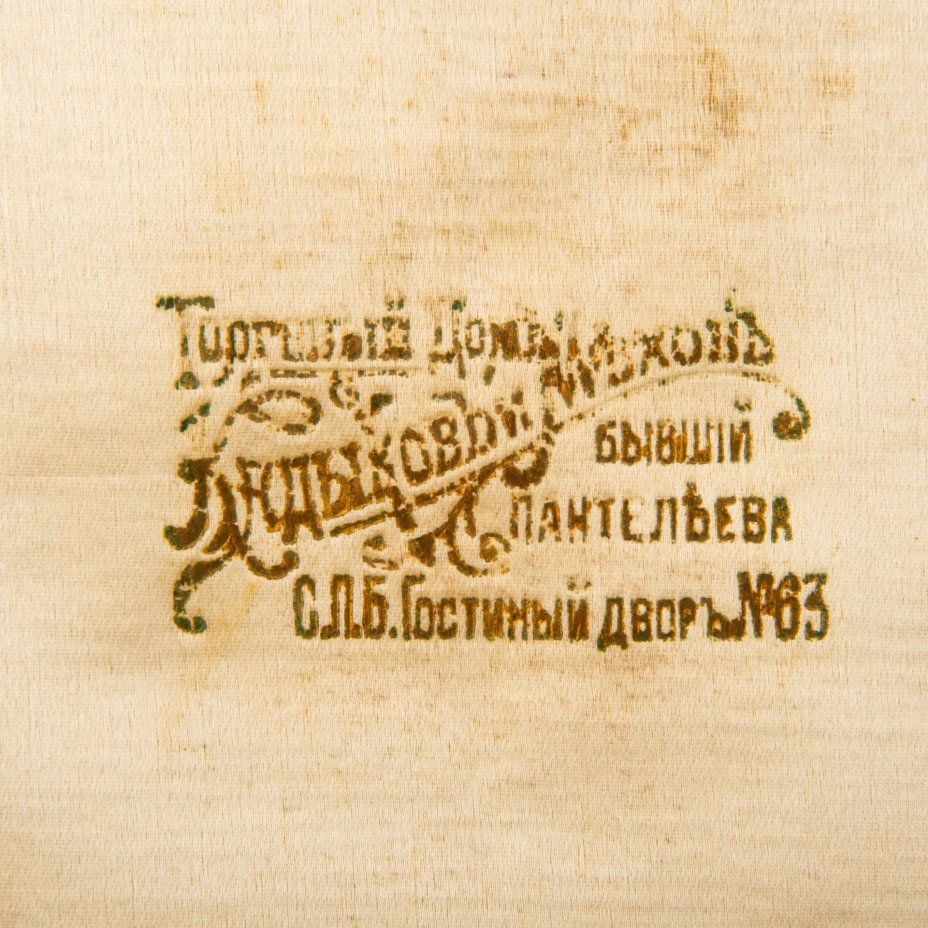 Торговый Домъ Мѣховъ
Бѣлдыцковой
бывшій
Пантелѣева
С.П.Б. Гостиный дворъ № 63